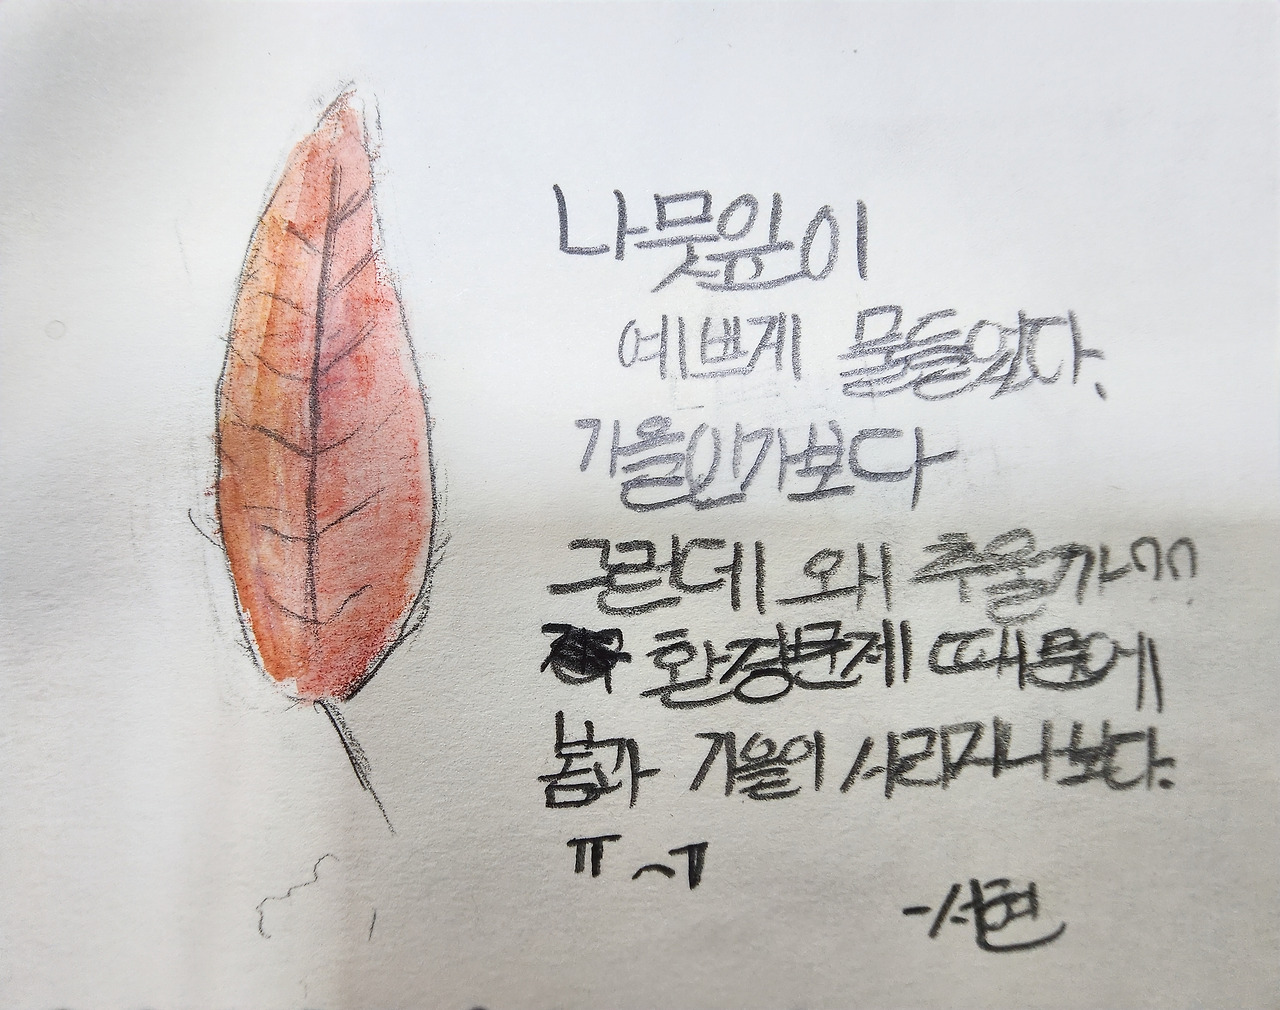 나뭇잎이
예쁘게 물들었다.
가을인가보다
그런데 왜 추울까??
환경문제 때문에
봄과 가을이 사라지나보다.
ㅠ~ㅠ
-서현